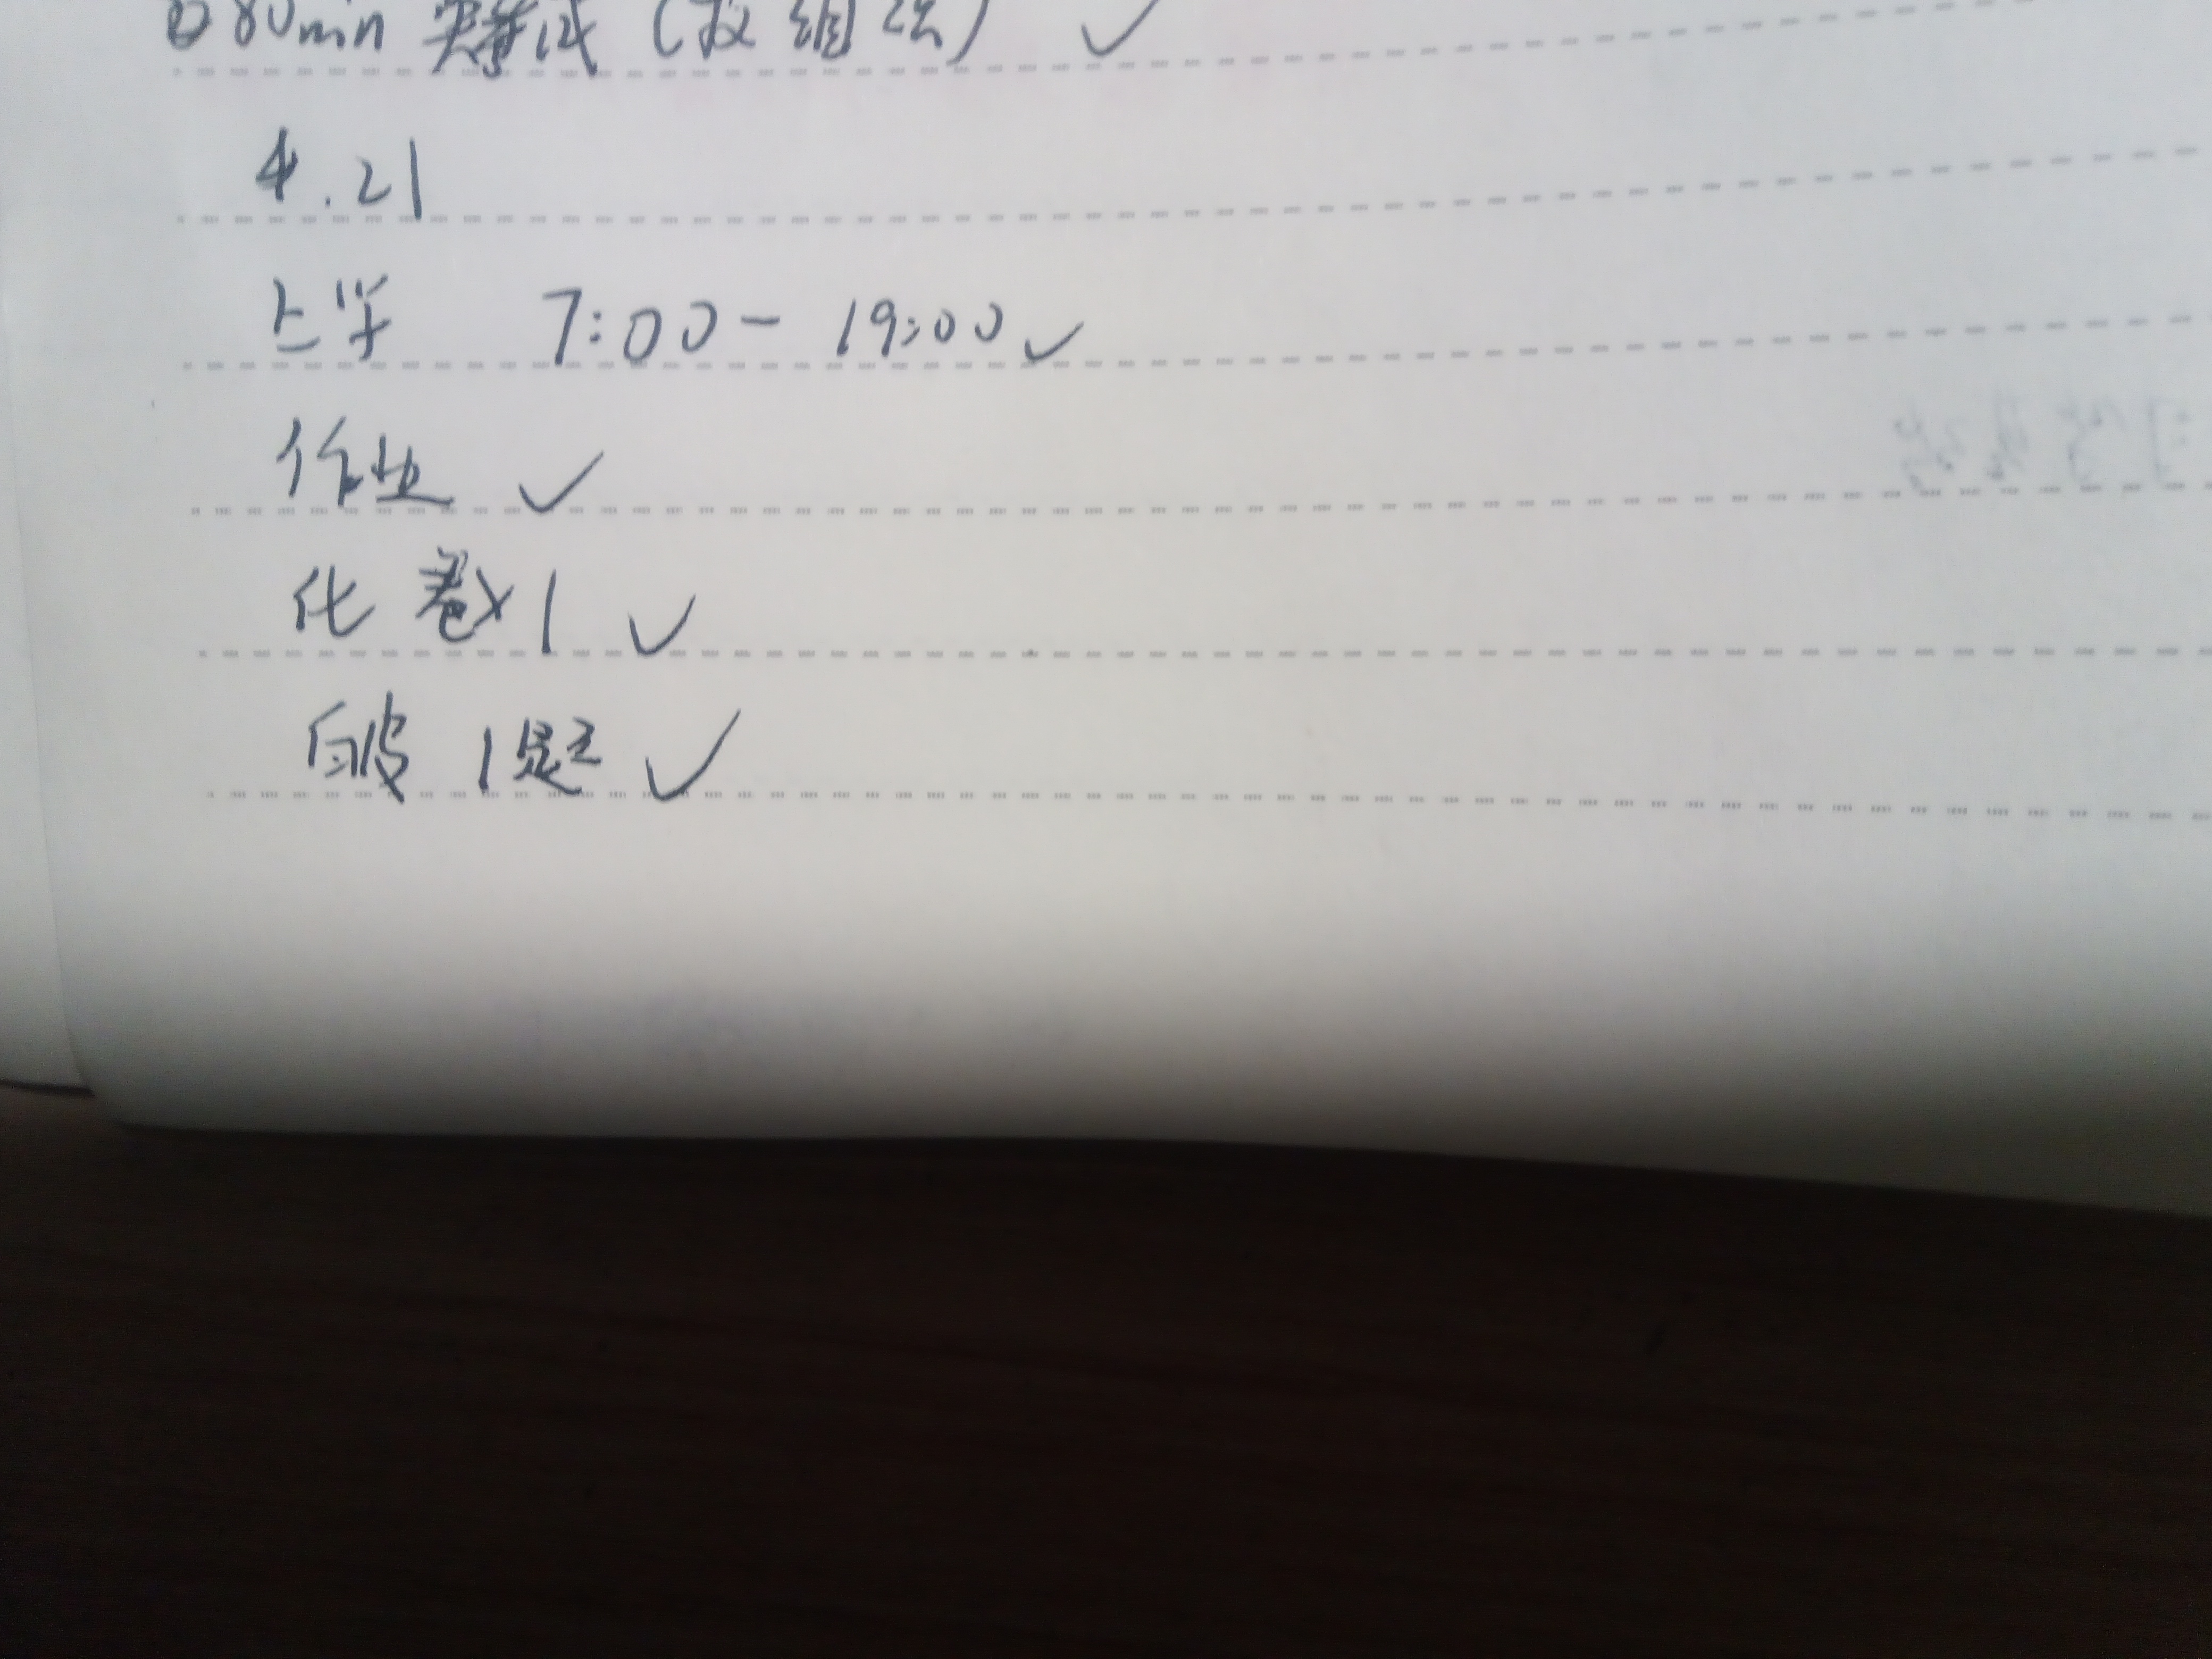 80min 实等试（双组法）✓
4.21
上学 7:00-19:00✓
作业 ✓
化 卷×1 ✓
白皮 1题 ✓